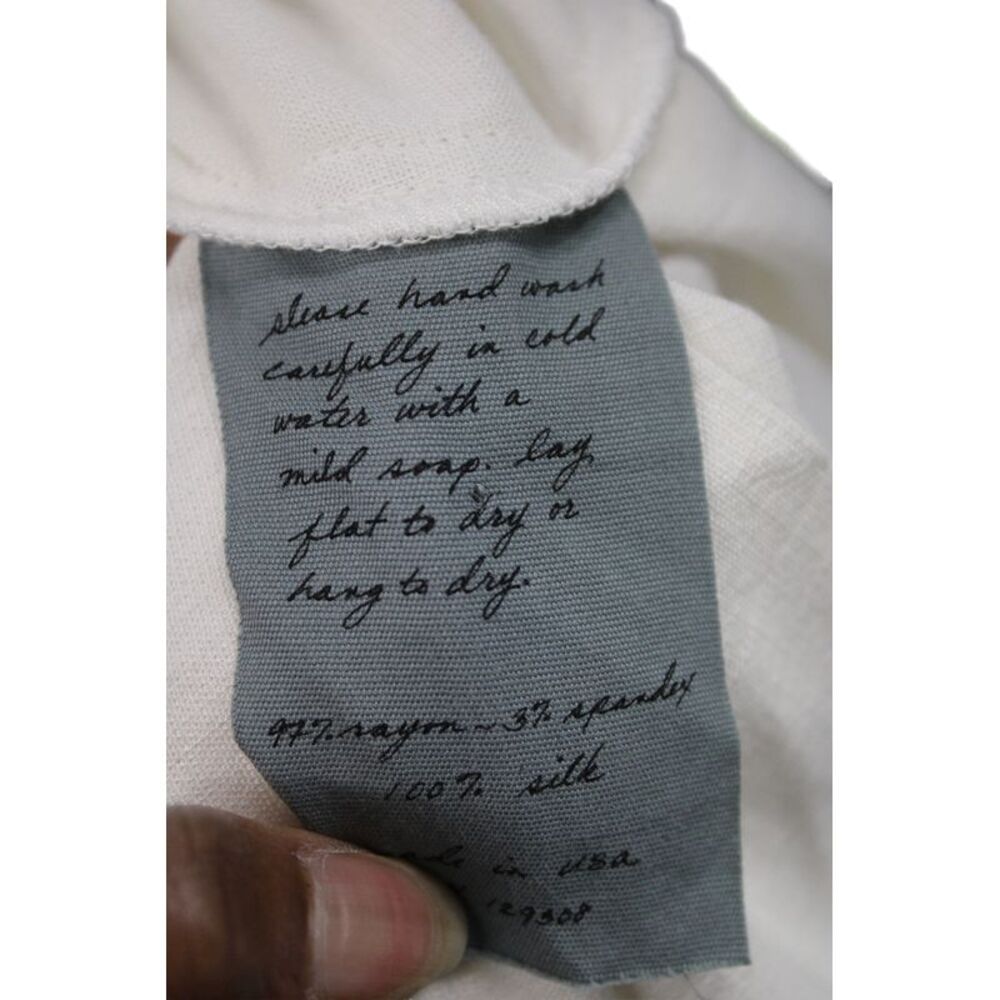 please hand wash
carefully in cold
water with a
mild soap. lay
flat to dry or
hang to dry.
97% rayon ~ 3% spandex
100% silk
in usa
129308